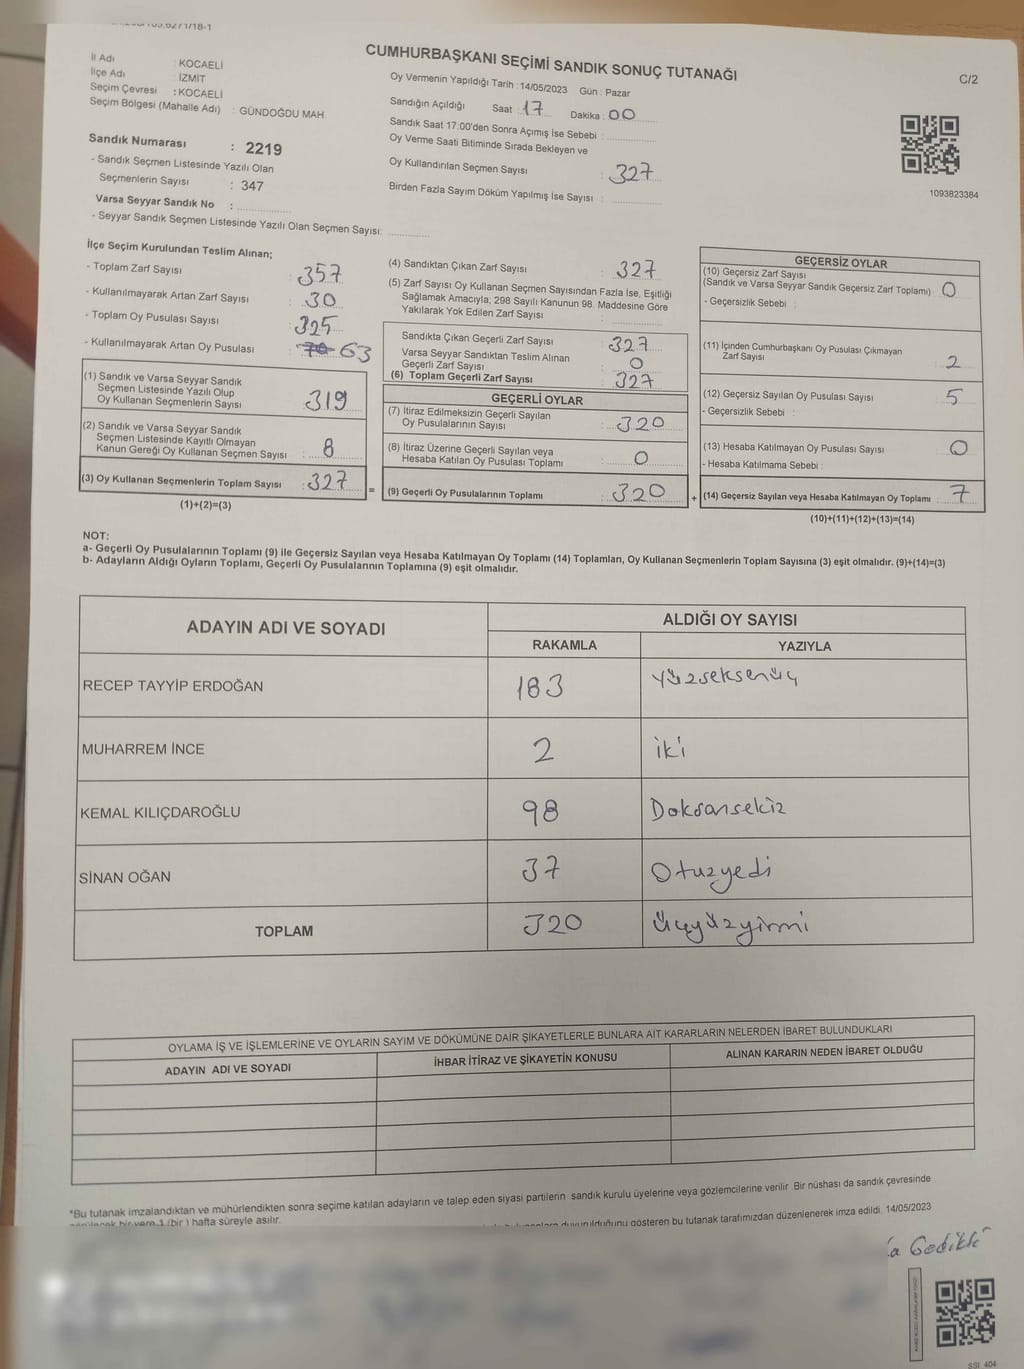 CUMHURBAŞKANI SEÇİMİ SANDIK SONUÇ TUTANAĞI
C/2
İl Adı : KOCAELİ
İlçe Adı : İZMİT
Seçim Çevresi : KOCAELİ
Seçim Bölgesi (Mahalle Adı) : GÜNDOĞDU MAH.
Sandık Numarası : 2219
- Sandık Seçmen Listesinde Yazılı Olan
Seçmenlerin Sayısı : 347
Varsa Seyyar Sandık No :
- Seyyar Sandık Seçmen Listesinde Yazılı Olan Seçmen Sayısı:
Oy Vermenin Yapıldığı Tarih : 14/05/2023 Gün : Pazar
Sandığın Açıldığı Saat 17 Dakika : 00
Sandık Saat 17:00'den Sonra Açımış İse Sebebi :
Oy Verme Saati Bitiminde Sırada Bekleyen ve
Oy Kullandırılan Seçmen Sayısı : 327
Birden Fazla Sayım Döküm Yapılmış İse Sayısı :
1093823384
İlçe Seçim Kurulundan Teslim Alınan;
- Toplam Zarf Sayısı : 357
- Kullanılmayarak Artan Zarf Sayısı : 30
- Toplam Oy Pusulası Sayısı : 325
- Kullanılmayarak Artan Oy Pusulası : 70 63
(1) Sandık ve Varsa Seyyar Sandık
Seçmen Listesinde Yazılı Olup
Oy Kullanan Seçmenlerin Sayısı : 319
(2) Sandık ve Varsa Seyyar Sandık
Seçmen Listesinde Kayıtlı Olmayan
Kanun Gereği Oy Kullanan Seçmen Sayısı : 8
(3) Oy Kullanan Seçmenlerin Toplam Sayısı : 327
(1)+(2)=(3)
=
(4) Sandıktan Çıkan Zarf Sayısı : 327
(5) Zarf Sayısı Oy Kullanan Seçmen Sayısından Fazla İse, Eşitliği
Sağlamak Amacıyla; 298 Sayılı Kanunun 98. Maddesine Göre
Yakılarak Yok Edilen Zarf Sayısı :
Sandıkta Çıkan Geçerli Zarf Sayısı : 327
Varsa Seyyar Sandıktan Teslim Alınan
Geçerli Zarf Sayısı : 0
(6) Toplam Geçerli Zarf Sayısı : 327
GEÇERLİ OYLAR
(7) İtiraz Edilmeksizin Geçerli Sayılan
Oy Pusulalarının Sayısı : 320
(8) İtiraz Üzerine Geçerli Sayılan veya
Hesaba Katılan Oy Pusulası Toplamı : 0
(9) Geçerli Oy Pusulalarının Toplamı : 320
+
GEÇERSİZ OYLAR
(10) Geçersiz Zarf Sayısı
(Sandık ve Varsa Seyyar Sandık Geçersiz Zarf Toplamı) : 0
- Geçersizlik Sebebi :
(11) İçinden Cumhurbaşkanı Oy Pusulası Çıkmayan
Zarf Sayısı : 2
(12) Geçersiz Sayılan Oy Pusulası Sayısı : 5
- Geçersizlik Sebebi :
(13) Hesaba Katılmayan Oy Pusulası Sayısı : 0
- Hesaba Katılmama Sebebi :
(14) Geçersiz Sayılan veya Hesaba Katılmayan Oy Toplamı : 7
(10)+(11)+(12)+(13)=(14)
NOT:
a- Geçerli Oy Pusulalarının Toplamı (9) ile Geçersiz Sayılan veya Hesaba Katılmayan Oy Toplamı (14) Toplamları, Oy Kullanan Seçmenlerin Toplam Sayısına (3) eşit olmalıdır. (9)+(14)=(3)
b- Adayların Aldığı Oyların Toplamı, Geçerli Oy Pusulalarının Toplamına (9) eşit olmalıdır.
ADAYIN ADI VE SOYADI
ALDIĞI OY SAYISI
RAKAMLA YAZIYLA
RECEP TAYYİP ERDOĞAN 183 Yüzseksenüç
MUHARREM İNCE 2 iki
KEMAL KILIÇDAROĞLU 98 Doksansekiz
SİNAN OĞAN 37 Otuzyedi
TOPLAM 320 üçyüzyirmi
OYLAMA İŞ VE İŞLEMLERİNE VE OYLARIN SAYIM VE DÖKÜMÜNE DAİR ŞİKAYETLERLE BUNLARA AİT KARARLARIN NELERDEN İBARET BULUNDUKLARI
ADAYIN ADI VE SOYADI İHBAR İTİRAZ VE ŞİKAYETİN KONUSU ALINAN KARARIN NEDEN İBARET OLDUĞU
*Bu tutanak imzalandıktan ve mühürlendikten sonra seçime katılan adayların ve talep eden siyasi partilerin sandık kurulu üyelerine veya gözlemcilerine verilir .Bir nüshası da sandık çevresinde
bir yere 1 (bir ) hafta süreyle asılır.
duyurulduğunu gösteren bu tutanak tarafımızdan düzenlenerek imza edildi. 14/05/2023
SSI 404